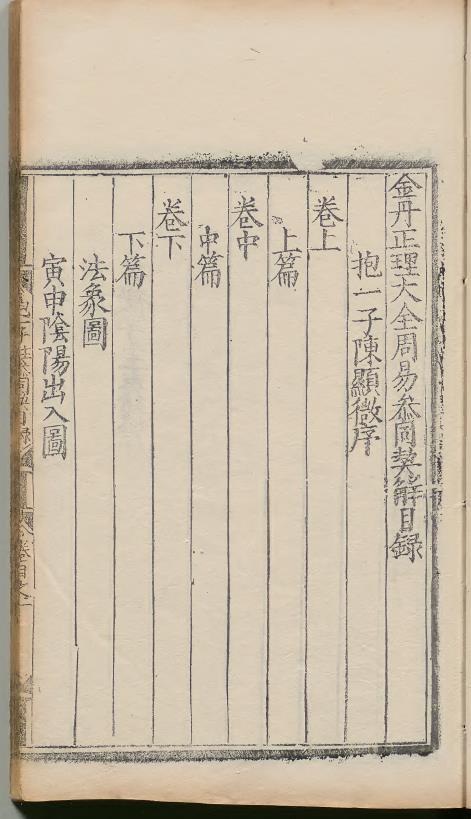 金丹正理大全周易叅同契觧目録
抱一子陳顯微序
卷上
上篇
卷中
中篇
卷下
下篇
法象圖
寅申陰陽出入圖